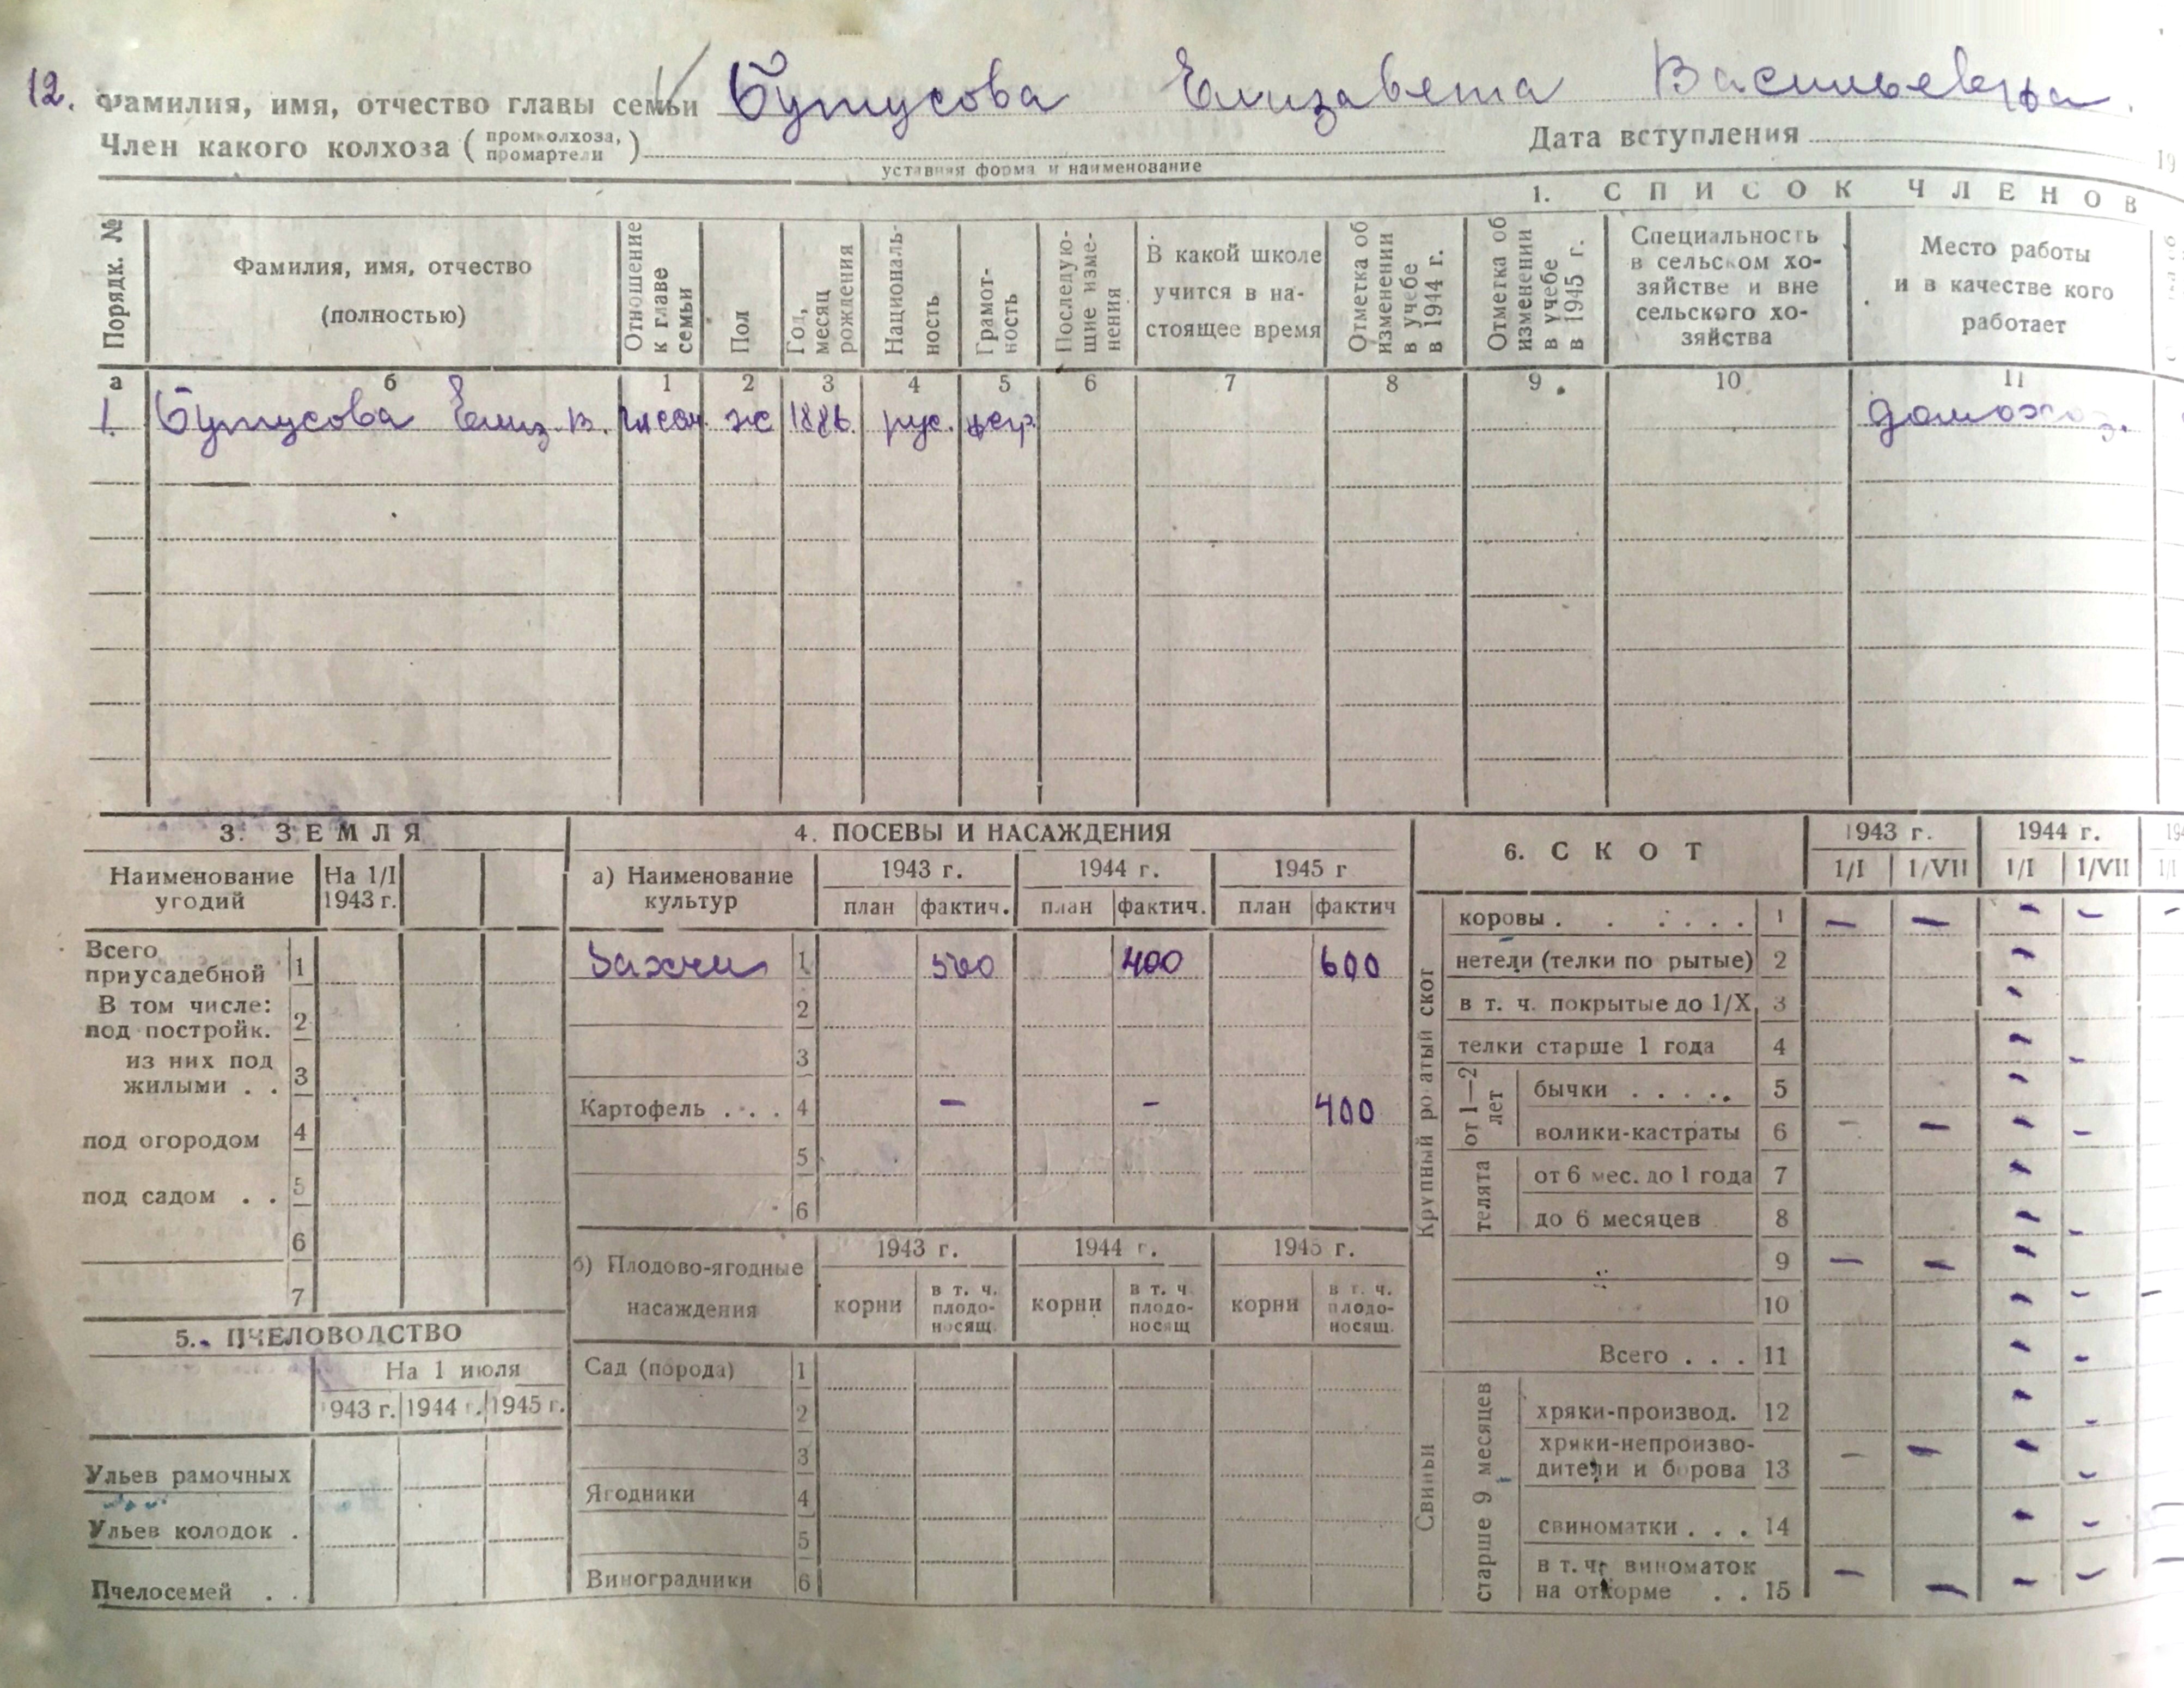 12. Фамилия, имя, отчество главы семьи Бутусова Елизавета Васильевна.
Член какого колхоза ( промколхоза, промартели ) Дата вступления 19
уставная форма и наименование
1. СПИСОК ЧЛЕНОВ
Порядк. № Фамилия, имя, отчество (полностью) Отношение к главе семьи Пол Год, месяц рождения Национальность Грамотность Последующие изменения В какой школе учится в настоящее время Отметка об изменении в учебе в 1944 г. Отметка об изменении в учебе в 1945 г. Специальность в сельском хозяйстве и вне сельского хозяйства Место работы и в качестве кого работает
а б 1 2 3 4 5 6 7 8 9 10 11
1. Бутусова Елиз. В. ж 1886. рус. домохоз.
3. ЗЕМЛЯ
Наименование угодий На 1/I 1943 г.
Всего приусадебной 1
В том числе: под постройк. 2
из них под жилыми . . 3
под огородом 4
под садом . . 5
6
7
5. ПЧЕЛОВОДСТВО
На 1 июля
1943 г. 1944 г. 1945 г.
Ульев рамочных
Ульев колодок .
Пчелосемей . .
4. ПОСЕВЫ И НАСАЖДЕНИЯ
а) Наименование культур 1943 г. 1944 г. 1945 г
план фактич. план фактич. план фактич
Бахчи 1 500 400 600
2
3
Картофель . . . 4 – – 400
5
6
б) Плодово-ягодные насаждения 1943 г. 1944 г. 1945 г.
корни в т. ч. плодоносящ. корни в т. ч плодоносящ корни в т. ч. плодоносящ.
Сад (порода) 1
2
3
Ягодники 4
5
Виноградники 6
6. СКОТ 1943 г. 1944 г.
1/I 1/VII 1/I 1/VII
Крупный рогатый скот
коровы . . . . . . 1 – – – – –
нетели (телки покрытые) 2 –
в т. ч. покрытые до 1/X 3 –
телки старше 1 года 4 – –
от 1—2 лет
бычки . . . . . 5 –
волики-кастраты 6 – – – –
телята
от 6 мес. до 1 года 7 –
до 6 месяцев 8 – –
9 – – –
10 – – –
Всего . . . 11 – –
Свиньи
старше 9 месяцев
хряки-производ. 12 – –
хряки-непроизводители и борова 13 – – – –
свиноматки . . . 14 – – –
в т. ч. свиноматок на откорме . . 15 – – – – –